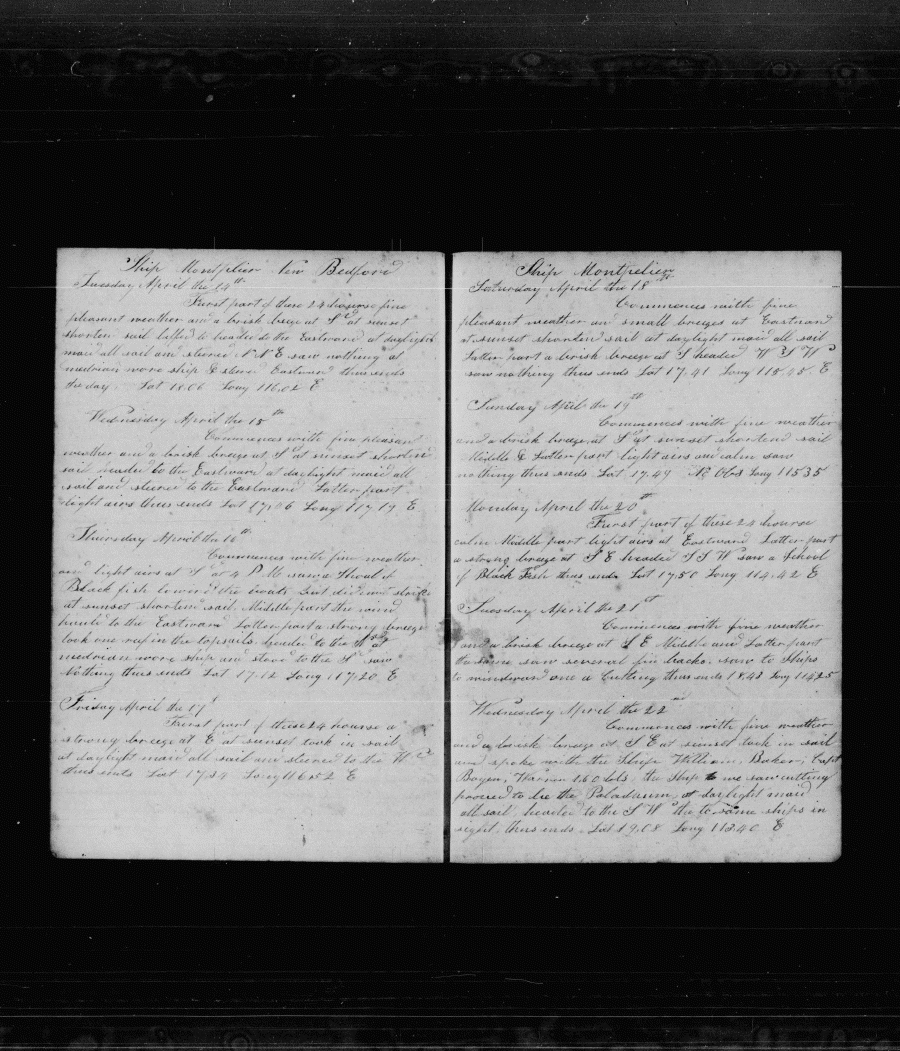 Ship Montplier New Bedford
Tuesday April the 14th
Furst part of these 24 hourse fine
pleasant weather and a brisk breeze at Sd at sunset
shorten sail luffed to headed to the Eastward at daylight
maid all sail and steered N N E saw nothing at
medrian wore ship & steerd Eastward thus ends
the day Lat 18.06 Long 116.02 E
Wednesday April the 15th
Commences with fine pleasant
weather and a brisk breeze at Sd at sunset shortend
sail headed to the Eastward at daylight maid all
sail and steered to the Eastward Latter part
light airs thus ends Lat 17.06 Long 117 19 E
Thursday April the 16th
Commences with fine weather
and light airs at Sd at 4 P M saw a Shoal of
Black fish lowerd the boats but did not strike
at sunset shortend sail Middle part the wind
hauld to the Eastward Latter part a strong breeze
took one reef in the topsails headed to the Nd at
medrian wore ship and steod to the Sd saw
Nothing thus ends Lat 17.12 Long 117.20 E
Friday April the 17
Furst part of these 24 hourse a
strong breeze at E at sunset took in sail
at daylight maid all sail and steered to the Wd
thus ends Lat 17.34 Long 116 52 E
Ship Montpelier
Saturday April the 18th
Commences with fine
pleasant weather and small breezes at Eastward
at sunset shortend sail at daylight maid all sail
Latter part a brisk breeze at S headed W S W
saw nothing thus ends Lat 17.41 Long 115.45 E
Sunday April the 19st
Commences with fine weather
and a brisk breeze at Sd at sunset shortend sail
Middle & Latter part light airs and calm saw
nothing thus ends Lat 17.49 No Obs Long 115 35
Monday April the 20th
Furst part of these 24 hourse
calm Middle part light airs at Eastward Latter part
a strong breeze at S E headed S S W saw a School
of Black Fish thus ends Lat 17.50 Long 114.42 E
Tuesday April the 21st
Commences with fine weather
and a brisk breeze at S E Middle and Latter part
the same saw several fin backs. saw to Ships
to windward one a Cutting thus ends 18.43 Long 114 25
Wednesday April the 22nd
Commences with fine weather
and a brisk breeze at S E at sunset took in sail
and spoke with the Ships William, Baker, Capt
Warren 160 bbls the Ship we saw cutting
proved to be the at daylight maid
all sail headed to the S W the to same ships in
sight thus ends Lat 19.08 Long 113.40 E